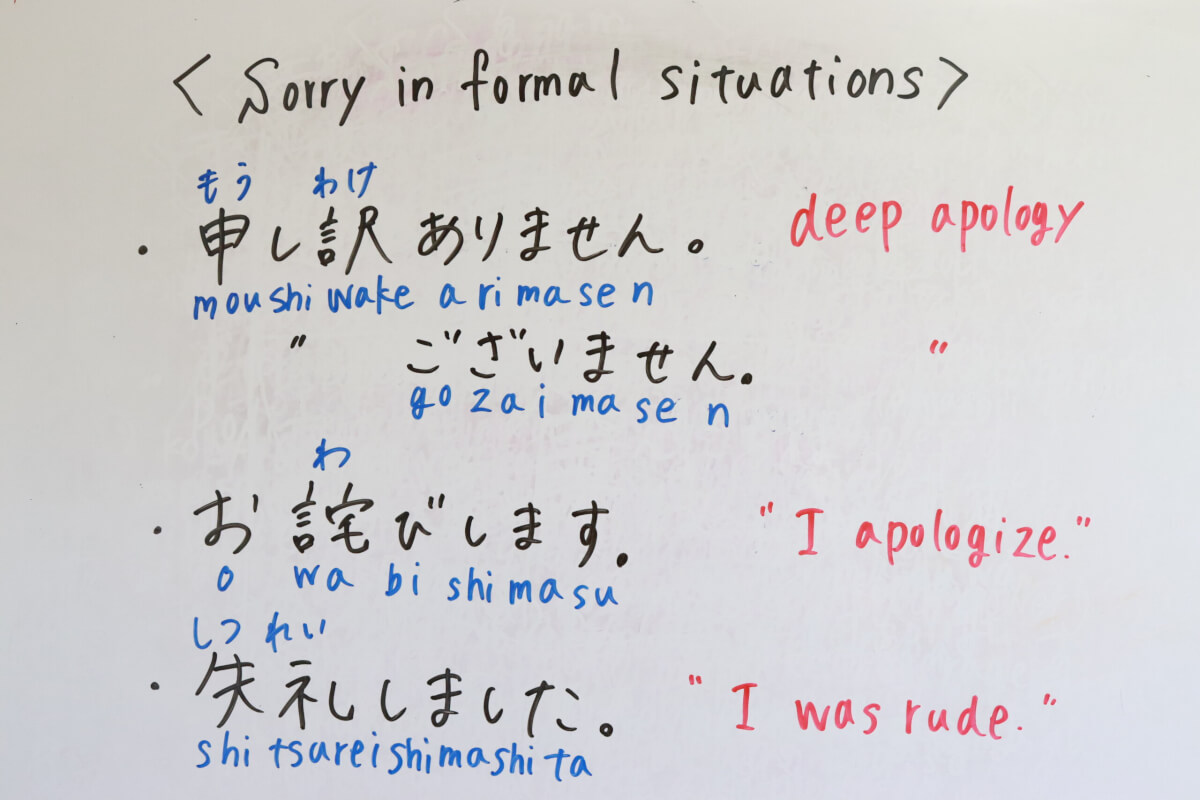 < Sorry in formal situations >
もう わけ
・申し訳ありません。 deep apology
moushiwake arimasen
〃 ございません。 〃
gozaimasen
わ
・お詫びします。 "I apologize."
o wabi shimasu
しつれい
・失礼しました。 "I was rude."
shitsureishimashita